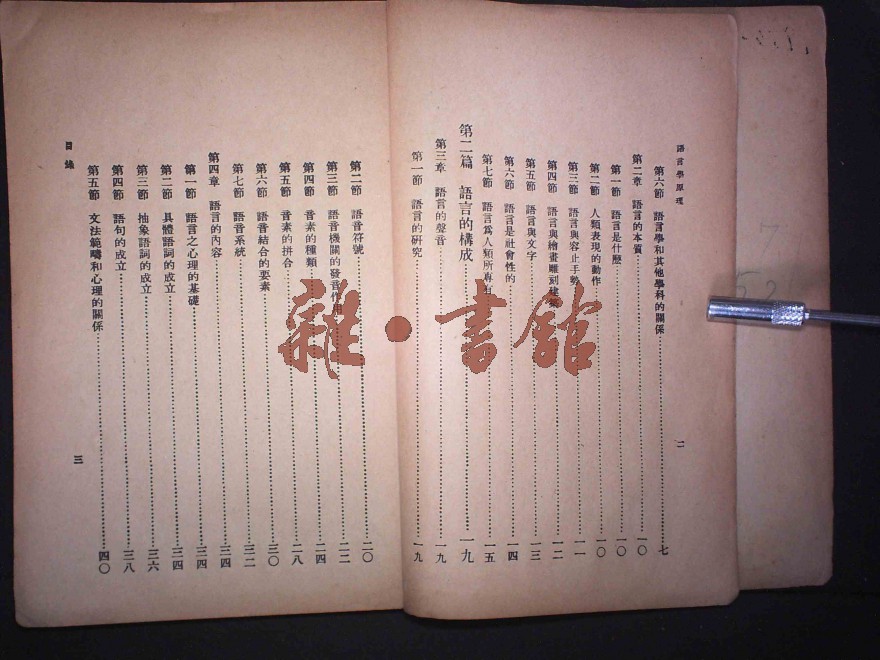 語言學原理
第六節 語言學和其他學科的關係 七
第二章 語言的本質 一〇
第一節 語言是什麼 一〇
第二節 人類表現的動作 一〇
第三節 語言與容止手勢 一一
第四節 語言與繪畫雕刻建築 一二
第五節 語言與文字 一三
第六節 語言是社會性的 一四
第七節 語言爲人類所專有 一五
第二篇 語言的構成 一九
第三章 語言的聲音 一九
第一節 語言的研究 一九
二
第二節 語音符號 二〇
第三節 語音機關的發音作用 二二
第四節 音素的種類 二四
第五節 音素的拼合 二八
第六節 語音結合的要素 三〇
第七節 語音系統 三二
第四章 語言的內容 三四
第一節 語言之心理的基礎 三四
第二節 具體語詞的成立 三四
第三節 抽象語詞的成立 三六
第四節 語句的成立 三八
第五節 文法範疇和心理的關係 四〇
目錄
三
雜·書館